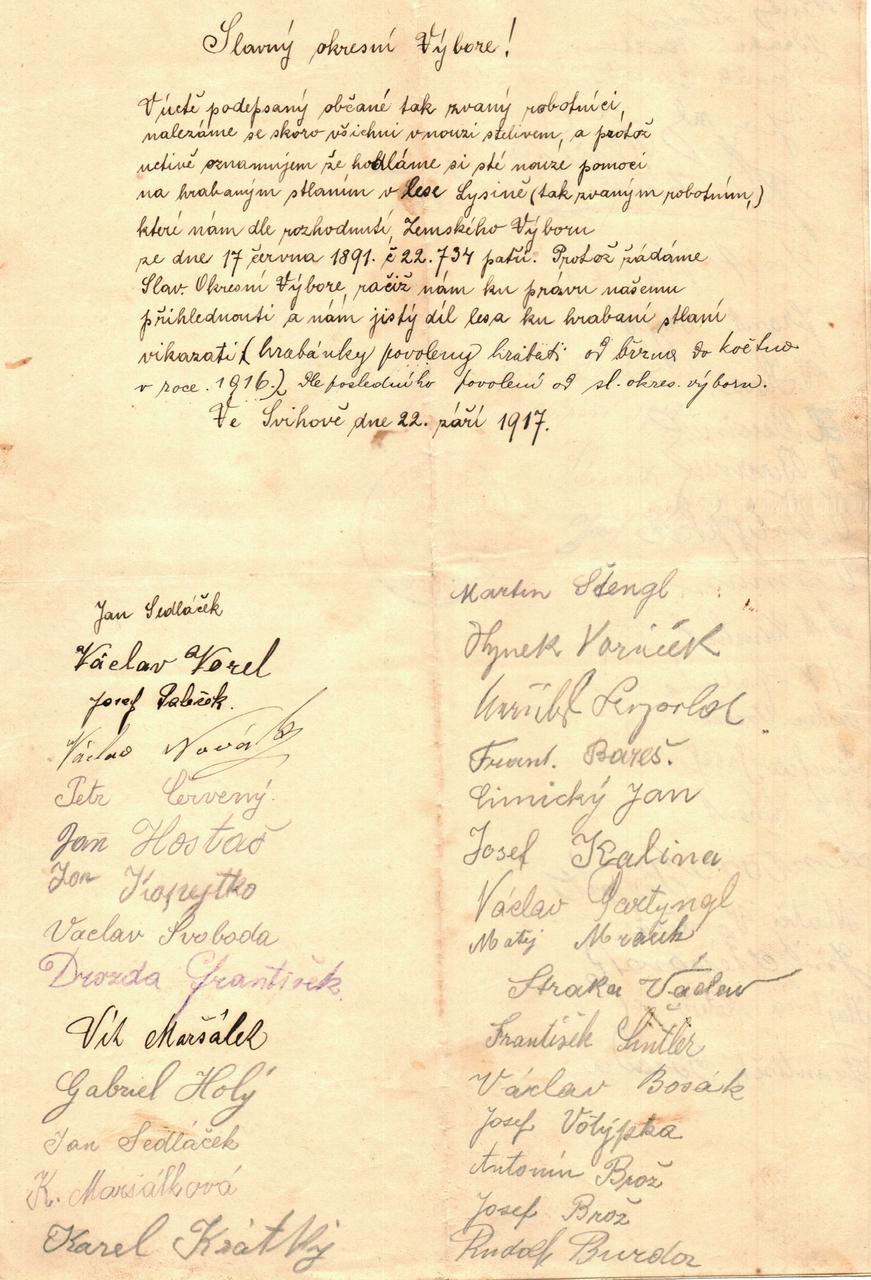 Slavný okresní Výbore!
V úctě podepsaný občané tak zvaný robotníci,
nalezáme se skoro všichni v nouzi stelivem, a protož
uctivě oznamujem že hodláme si sté nouze pomoci
na hrabaným stlaním v lese Lysině (tak zvaným robotním,)
které nám dle rozhodnutí, Zemského Výboru
ze dne 17 června 1891. č 22.734 patří. Protož žádáme
Slav Okresní Výbore, račiž nám ku právu našemu
přihlednouti a nám jistý díl lesa ku hrabaní stlaní
vikazati (hrabánky povoleny hrabati od března do května
v roce. 1916.) Dle posledního povolení od sl. okres. výboru.
Ve Švihově dne 22. září 1917.
Jan Sedláček
Václav Vorel
Josef
Václav Novák
Petr Červený.
Jan Hostaš
Jan Kopejtko
Vaclav Svoboda
Drozda František
Vít Maršálek
Gabriel Holý
Jan Sedláček
K. Maršálková
Karel Krátký
Martin Štengl
Hynek Voráček
Frant. Bareš.
Cimický Jan
Josef Kalina
Václav Partyngl
Matěj Mraček
Straka Václav
František
Václav Bosák
Josef Votýpka
Antonín Brož
Josef Brož
Rudolf Burda